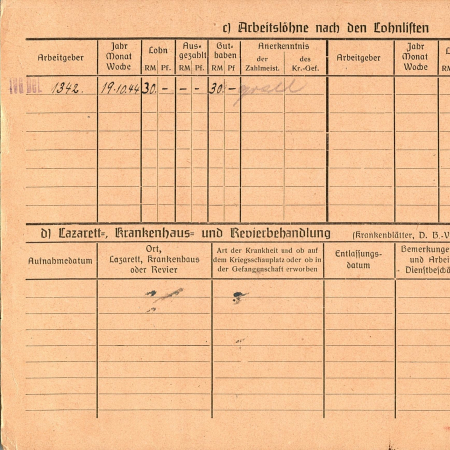 c) Arbeitslöhne nach den Lohnlisten
Arbeitgeber Jahr Monat Woche Lohn RM Pf. Ausgezahlt RM Pf. Guthaben RM Pf Anerkenntnis der Zahlmeist. des Kr.-Gef. Arbeitgeber Jahr Monat Woche
1342. 19.10.44 30. - - - 30. -
d) Lazarett-, Krankenhaus- und Revierbehandlung (Krankenblätter, D. B.-V
Aufnahmedatum Ort, Lazarett, Krankenhaus oder Revier Art der Krankheit und ob auf dem Kriegsschauplatz oder ob in der Gefangenschaft erworben Entlassungs-datum Bemerkunge und Arbei Dienstbeschä